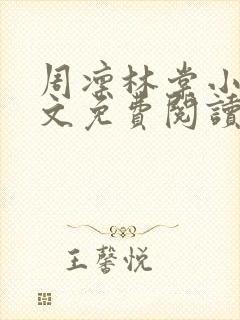 周凛林棠小
文免費閱讀
王馨悦